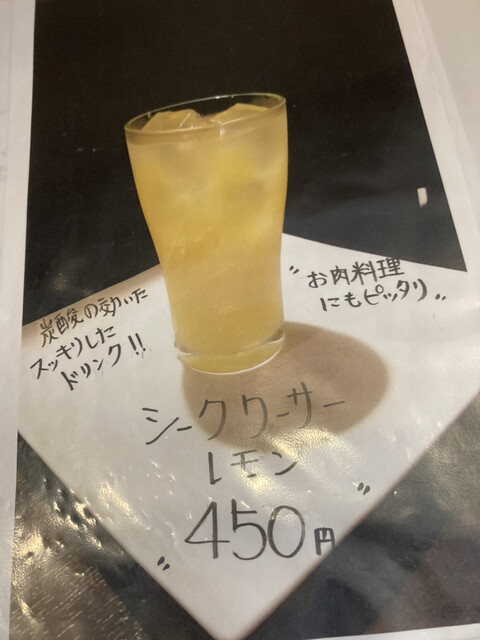 炭酸の効いた
スッキリした
ドリンク!!
"お肉料理
にもピッタリ"
シークワーサー
レモン
"450円"